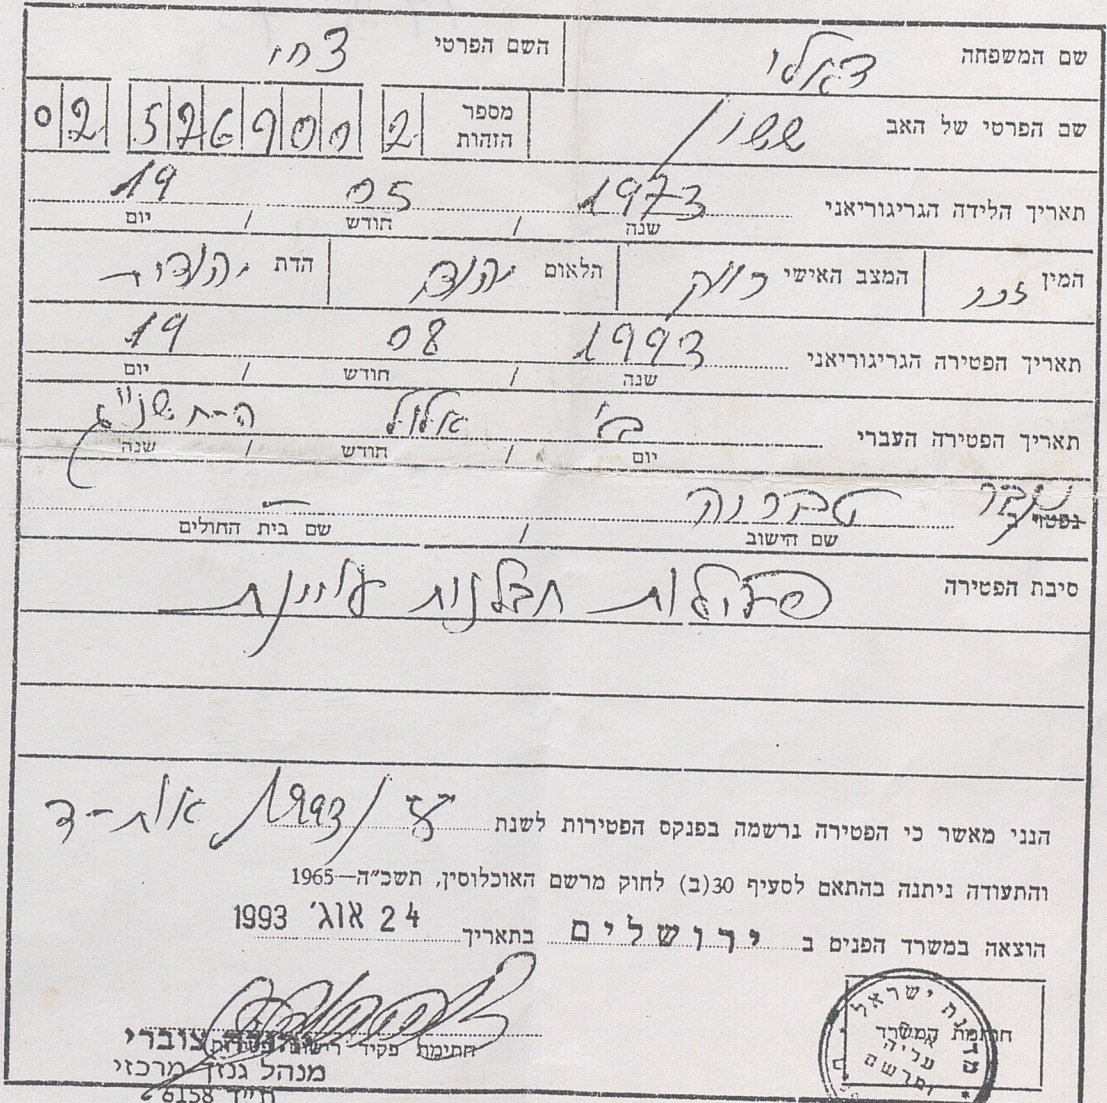 שם המשפחה דאלו השם הפרטי צחי
שם הפרטי של האב ששון מספר הזהות 02 576900 2
תאריך הלידה הגריגוריאני 1973 05 19
שנה / חודש / יום
המין זכר המצב האישי רווק הלאום יהודי הדת יהודית
תאריך הפטירה הגריגוריאני 1993 08 19
שנה / חודש / יום
תאריך הפטירה העברי ב' אלול ה-תשנ"ג
יום / חודש / שנה
נפטר ב נקבר טבריה –
שם הישוב / שם בית החולים
סיבת הפטירה פעילות חבלנית עויינת
הנני מאשר כי הפטירה נרשמה בפנקס הפטירות לשנת 1993
והתעודה ניתנה בהתאם לסעיף 30(ב) לחוק מרשם האוכלוסין, תשכ"ה—1965
הוצאה במשרד הפנים ב ירושלים בתאריך 24 אוג' 1993
חתימת פקיד רישום חתימת המשרד
צוברי
מנהל גנזך מרכזי
6158
ישראל
עליה
ומרשם